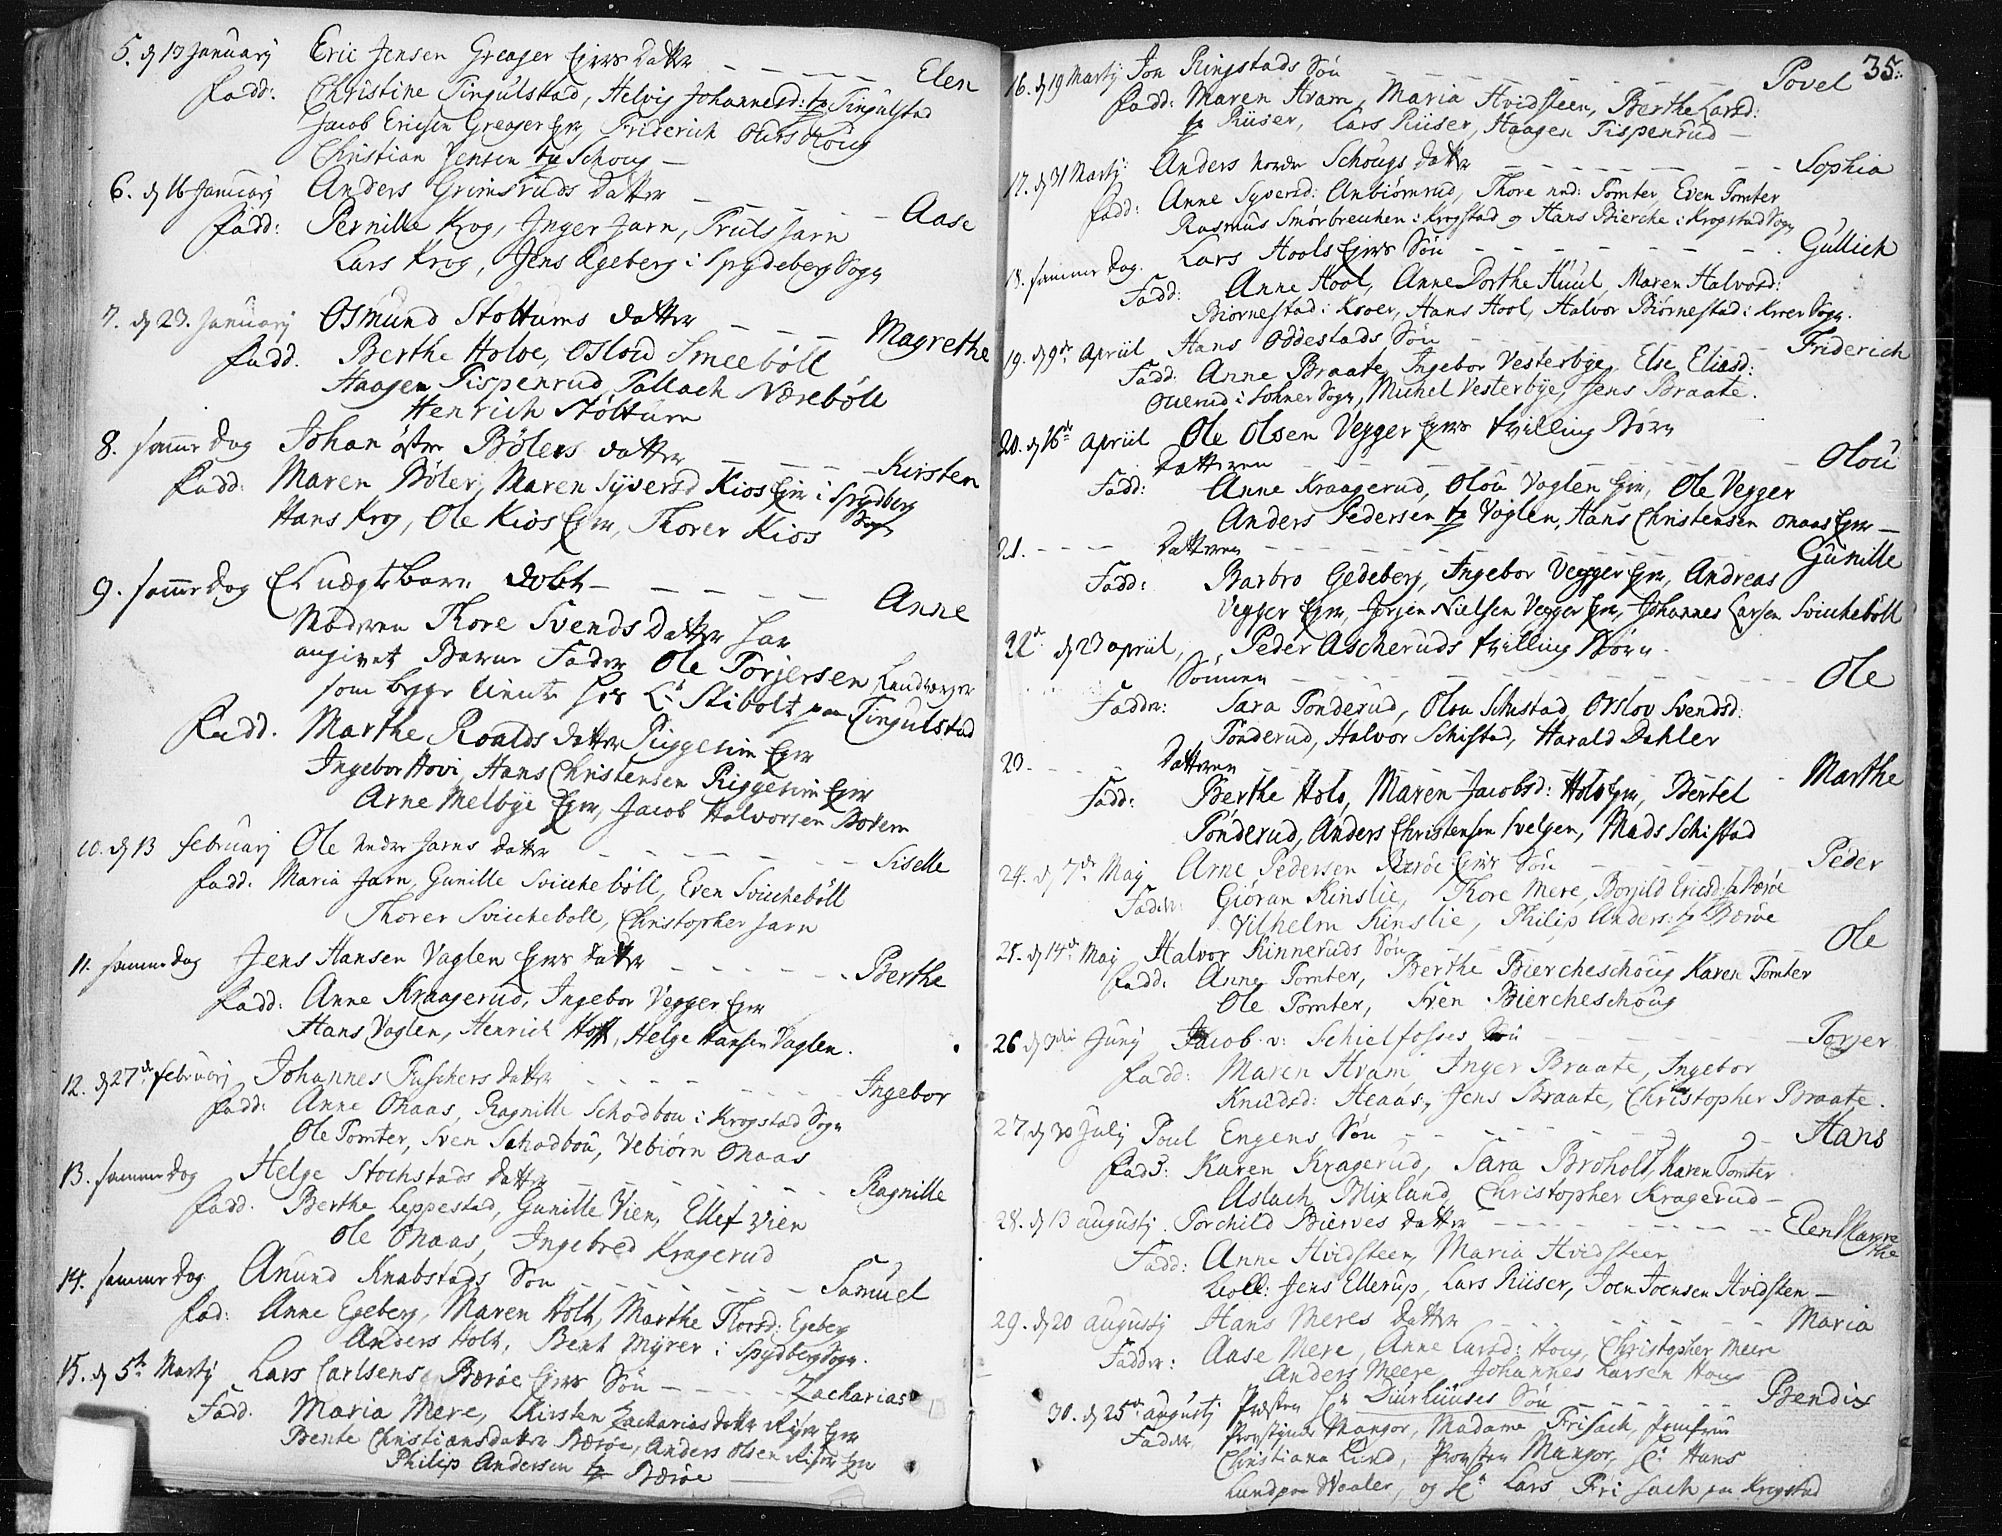 5. d 13 January Eric Jensen Greager Eiers Datter - - - - - Elen
Fadd: Christine Tingulstad, Helvig Johannesd: fra Tingulstad
Jacob Ericsen Greager Eier, Friderich
Christian Jensen fra Schoug -
6. d 16 January Anders Grimsruds Datter - - - - Aase
Fadd: Pernille Krog, Inger Jarn, Truls Jarn
Lars Krog, Jens Egeberg i Spydeberg Sogn
7. d 23. January Osmund Stottums datter - - - Magrethe
Fadd. Berthe Holoe, Osloud Smeeböll
Haagen Tispenrud, Tallach Nærebøll
Henrich Støltum
8. samme Dag Johan østre Bølers datter - - - - Kirsten
Fadd: Maren Bøler, Maren Syversd Kios Eier i Spydberg
Hans Krog, Ole Kios Eier, Thorer Kios Sogn
9. samme Dag Et uægte barn døbt - - - - - Anne
Moderen Thore Svends Datter har
angivet Barne Fader Ole Torjersen
som hos Lt Stibolt paa Tingulstad
Fadd. Marthe Roalds datter Riggesiin Eier
Ingebor Hovi, Hans Christensen Riggesiin Eier
Arne Melbye Eier, Jacob Halvorsen
10. d 13 february Ole nedre Jarns datter - - - - - Siselle
Fadd. Maria Jarn, Gunille Svicheböll, Even Svicheböll
Thorer Svicheboll, Christopher Jarn
11. samme dag Jens Hansen Vaglen Eiers datter - - - - - Berthe
Fadd: Anne Kraagerud, Ingebor Vegger Eier
Hans Vaglen, Henrich Hoff, Helge Hansen Vaglen.
12. d 27de february Johannes Fuschers datter - - - - Ingebor
Fadd: Anne Onaas, Ragnille Schodbou i Krogstad Sogn
Ole Tomter, Sven Schodbou, Vebiørn Onaas
13. samme Dag Helge Stochstads datter - - - - - Ragnille
Fadd. Berthe Leppestad, Gunille Vien, Ellef Vien
Ole Onaas, Ingebred Kragerud
14. samme Dag Anund Knabstads Søn - - - - - Samuel
Fad: Anne Egeberg, Maren Holt, Marthe Thorsd: Egeberg
Anders Holt, Bent Myrer i Spydberg Sogn.
15. d 5te Martij Lars Carlsens Bæröe Eiers Søn - - - - Zacharias
Fadd. Maria Mere, Kirsten Zacharias datter Eier
Bente Christiansdatter Bæröe, Anders Olsen Eier
Philip Andersen fra Bæröe
35.
16. d 19 Martij Jon Ringstads Søn - - - - - Povel
Fadd: Maren Hram, Maria Hvidsteen, Berthe Larsd:
fra Riiser, Lars Riiser, Haagen Tispenrud -
17. d 31 Martij: Anders nordre Schougs datter - - - - - Sophia
Fadd: Anne Syversd: Anbiørnrud, Thore Tomter, Even Tomter
Rasmus Smørbrechen i Krogstad og Hans Bierche i Krogstad Sogn
18. samme Dag. Lars Hools Eiers Søn - - - - - Gullich
Fadd: Anne Hool, Anne Dorthe Huul, Maren Halvorsd:
Biørnestad i Kroer, Hans Hool, Halvor Biørnestad i Kroer Sogn.
19. d 9de April Hans Oddestads Søn - - - - - Friderich
Fadd: Anne Braate, Ingebor Vesterbye, Else Eliasd:
Ouerud i Sohner Sogn, Michel Vesterbye, Jens Braate.
20. d 16de April Ole Olsen Vegger Eiers tvilling Børn
Datteren - - - - - Olou
Fadd: Anne Kraagerud, Olou Vaglen Eier, Ole Vegger
Anders Pedersen fra Vaglen, Hans Christensen Onaas Eier -
21. - - - Datteren - - - - - Gunille
Fadd: Barbro Gedeberg, Ingebor Vegger Eier, Andreas
Vegger Eier, Jørgen Nielsen Vegger Eier, Johannes Larsen Svicheböll
22 d 23 april, Peder Ascheruds tvilling Børn.
Sönnen - - - - - Ole
Fadder: Sara Tonderud, Olou Schistad, Orslov Svendsd:
Tonderud, Halvor Schistad, Harald Dahler
23. - - Datteren - - - - - Marthe
Fadd: Berthe Holo, Maren Jacobsd: Holo Eier, Bertel
Tonderud, Anders Christensen Svelgen, Mads Schistad
24. d 7de Maij Arne Pedersen Bæröe Eiers Søn - - - - Peder
Fadder: Giöran Kinslie, Thore Mere, Borgild Ericsd: fra Bæröe
Vilhelm Kinslie, Philip Anders: fra Bæröe
25. d 14de Maij Halvor Kinneruds Søn - - - - - Ole
Fadd: Anne Tomter, Berthe Biercheschoug Karen Tomter
Ole Tomter, Sven Biercheschoug
26 d 3die Junij Jacob v: Schielfosses Søn - - - - - Torjer
Fadd: Maren Hram, Inger Braate, Ingebor
Knudsd: Heaas, Jens Braate, Christopher Braate.
27. d 30 Julij Poul Engens Søn - - - - - Hans
Fadd: Karen Kragerud, Sara Broholt, Karen Tomter
Aslach Mixland, Christopher Kragerud -
28. d 13 augustij. Torchild Bierves datter - - - - - Elen Margrethe
Fadd: Anne Hvidsteen, Maria Hvidsteen
Jens Ellerup, Lars Riiser, Joen Joensen Hvidsten -
29. d 20 augustij Hans Meres Datter - - - - - Maria
Fadder: Aase Mere, Anne Larsd: Houg, Christopher Mere
Anders Meere, Johannes Larsen Houg
30. d 25de augustij Præsten Hr Duurhuuses Søn - - - - - Bendix
Fadder Provstinde Mangor, Madame Frisach, Jomfrue
Christiana Lind, Provsten Mangor, Hr Hans
Lund paa Waaler, og Hr Lars Frisach paa Krogstad